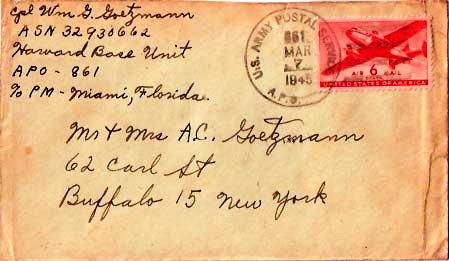 Cpl Wm G. Goetzmann
ASN 32930662
Howard Base Unit
APO - 861
℅ PM - Miami, Florida.
U.S. ARMY POSTAL SERVICE
861
MAR
7
1945
A.P.O.
AIR 6¢ MAIL
UNITED STATES OF AMERICA
Mr & Mrs A.C. Goetzmann
62 Carl St
Buffalo 15 New York